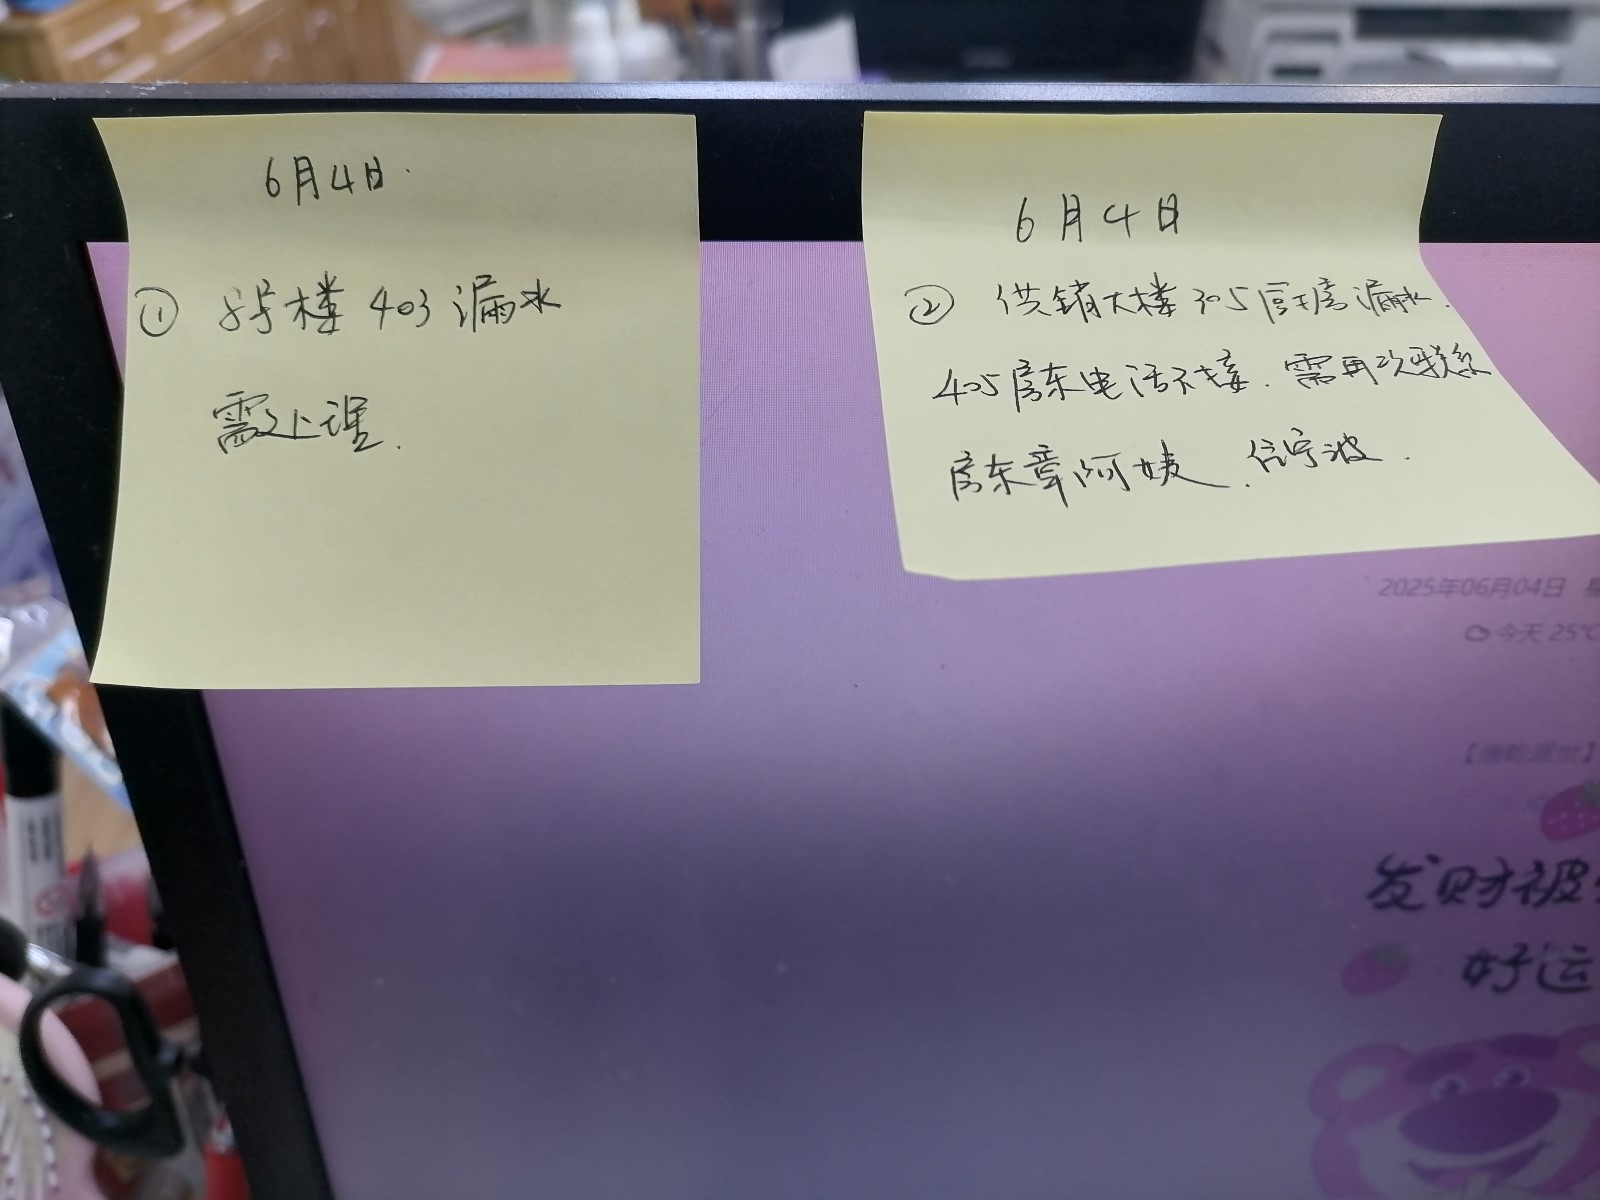 6月4日.
① 8号楼403漏水
需处理.
6月4日
② 供销大楼305厨房漏水.
405房东电话不接.需再次联系
房东章阿姨.住宁波.
2025年06月04日 星
今天25℃
发财被
好运